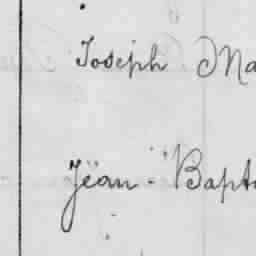 Joseph Ma
Jean-Bapt